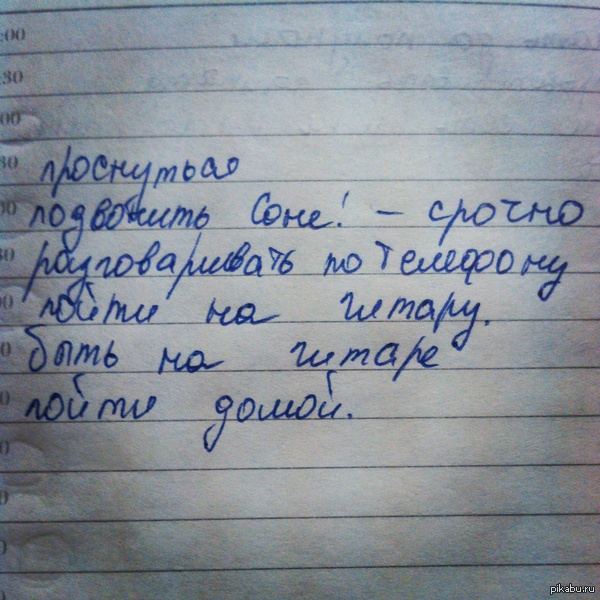 :00
:30
00
30
проснуться
00
подвонить Соне! – срочно
30
разговаривать по телефону
00
пойти на гитару.
0
быть на гитаре
0
пойти домой.
0
0
0
pikabu.ru